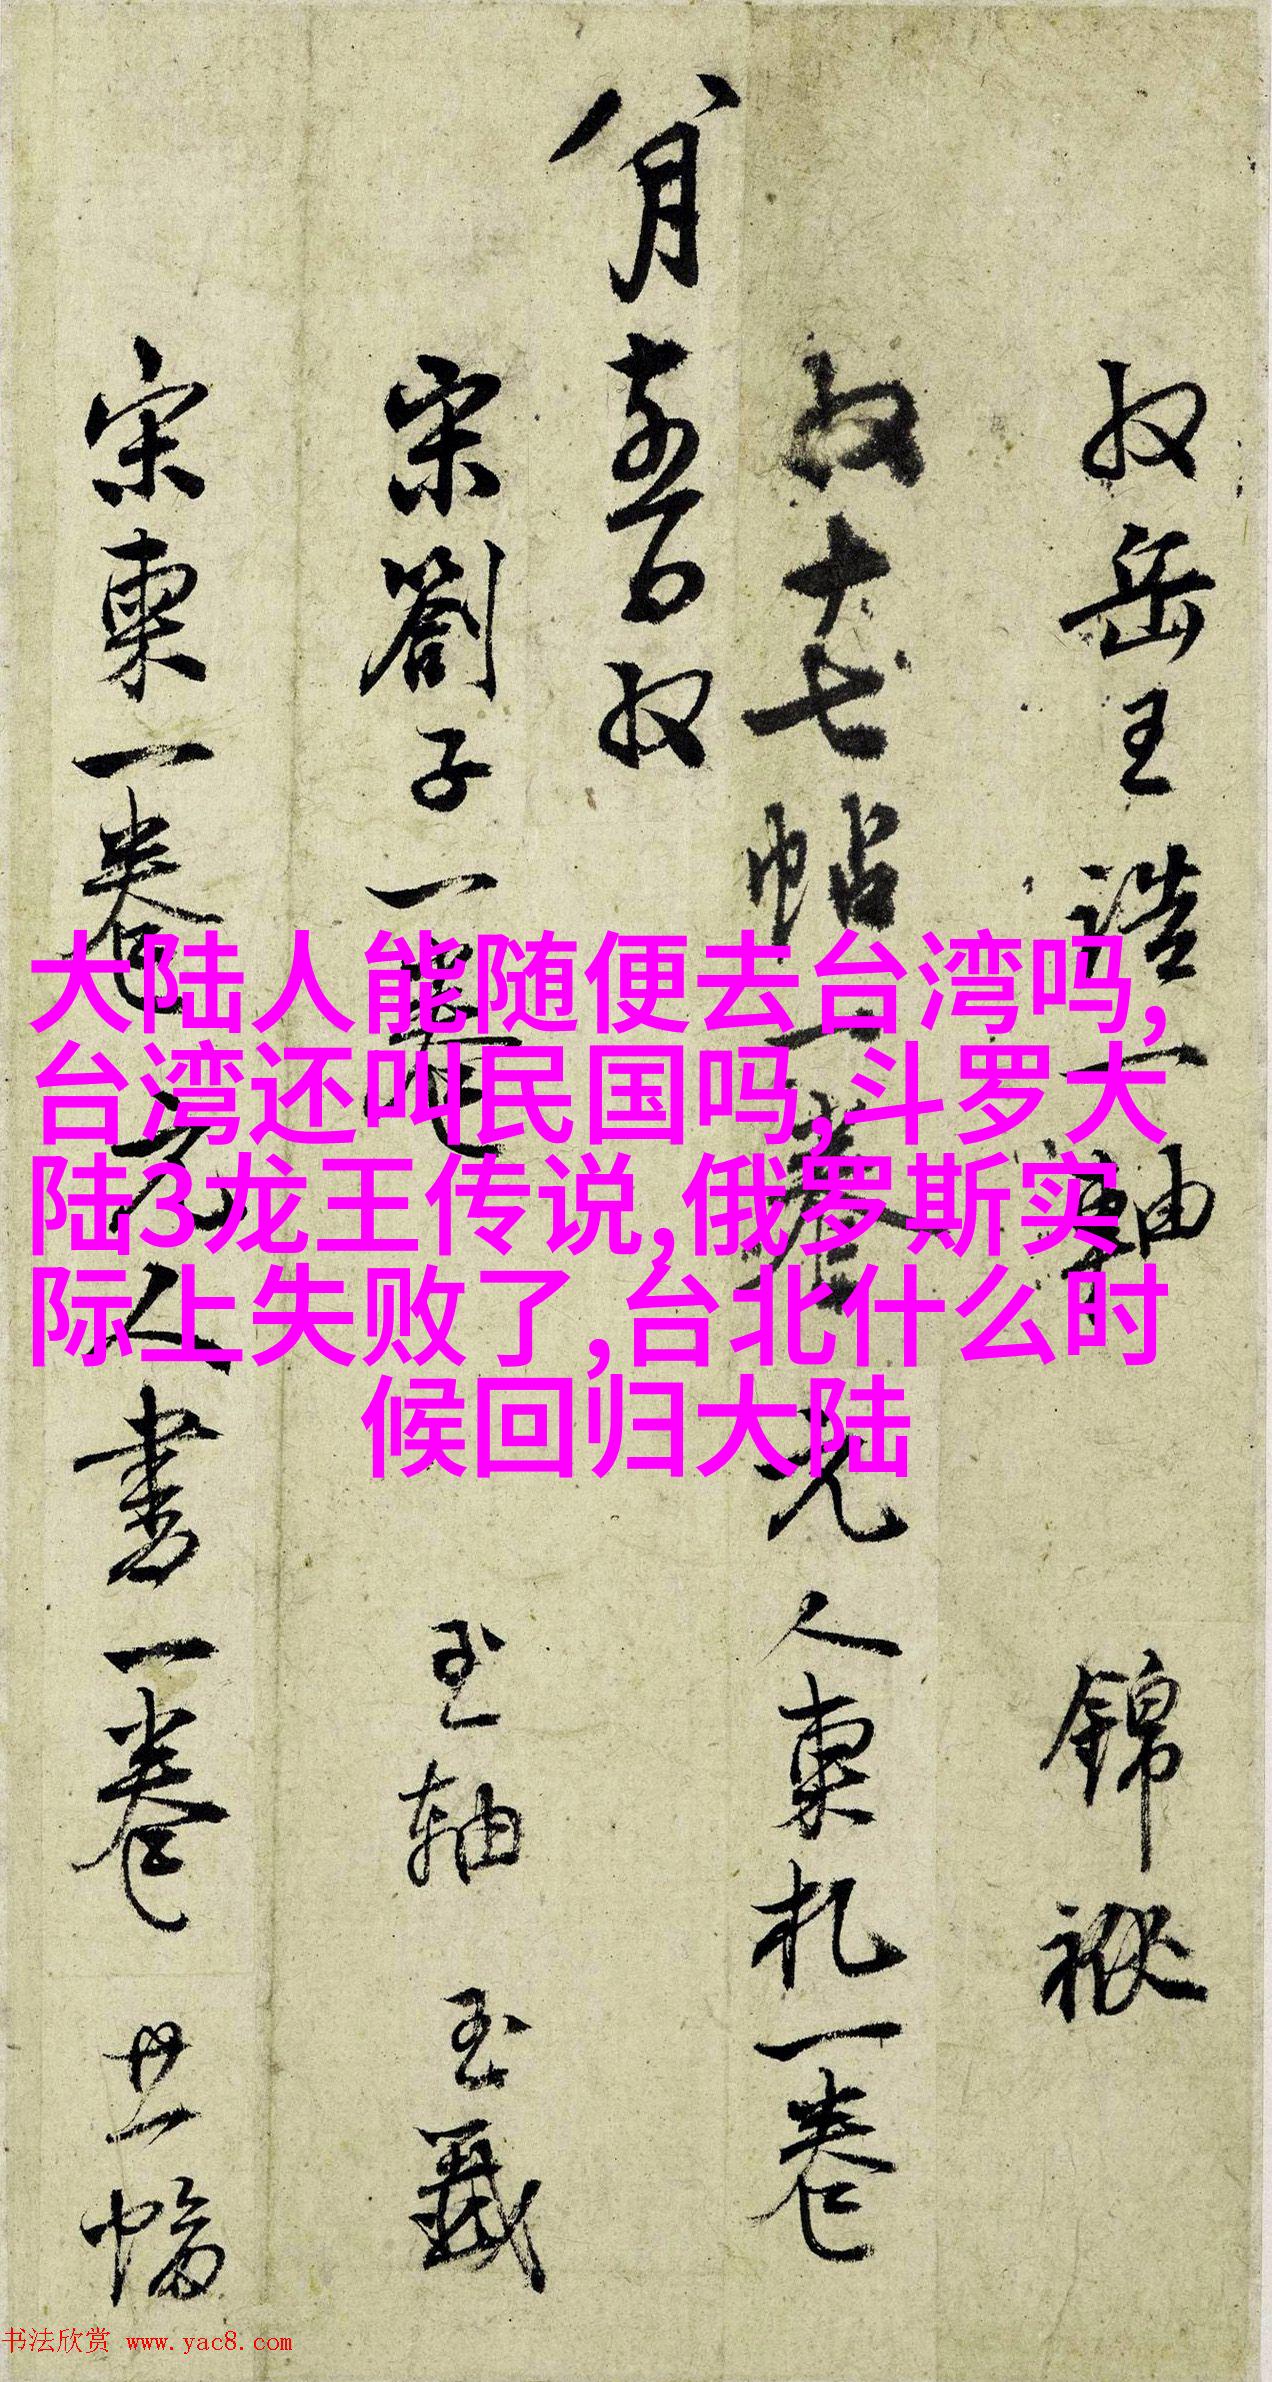 收岳王誥一軸 錦褫
收十七帖一卷 元人柬札一卷
八月 收
宋劄子一卷 玉軸 玉籤
宋柬一卷 元人書一卷 廿幅
大陆人能随便去台湾吗,
台湾还叫民国吗,斗罗大
陆3龙王传说,俄罗斯实
际上失败了,台北什么时
候回归大陆
书法欣赏 www.yac8.com